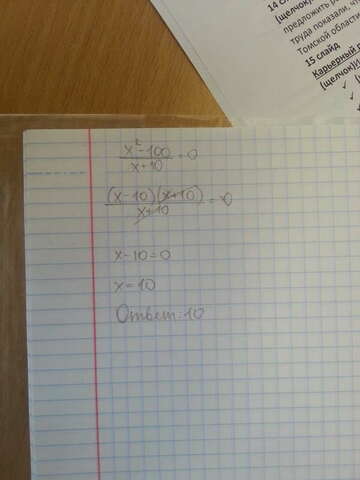 14 сл
(щелчок)
предложить р
труда показали, ч
Томской област
15 слайд
Карьерный
(щелчок)И
x²-100
x+10 = 0
(x-10)(x+10)
x+10 = 0
x-10=0
x=10
Ответ: 10